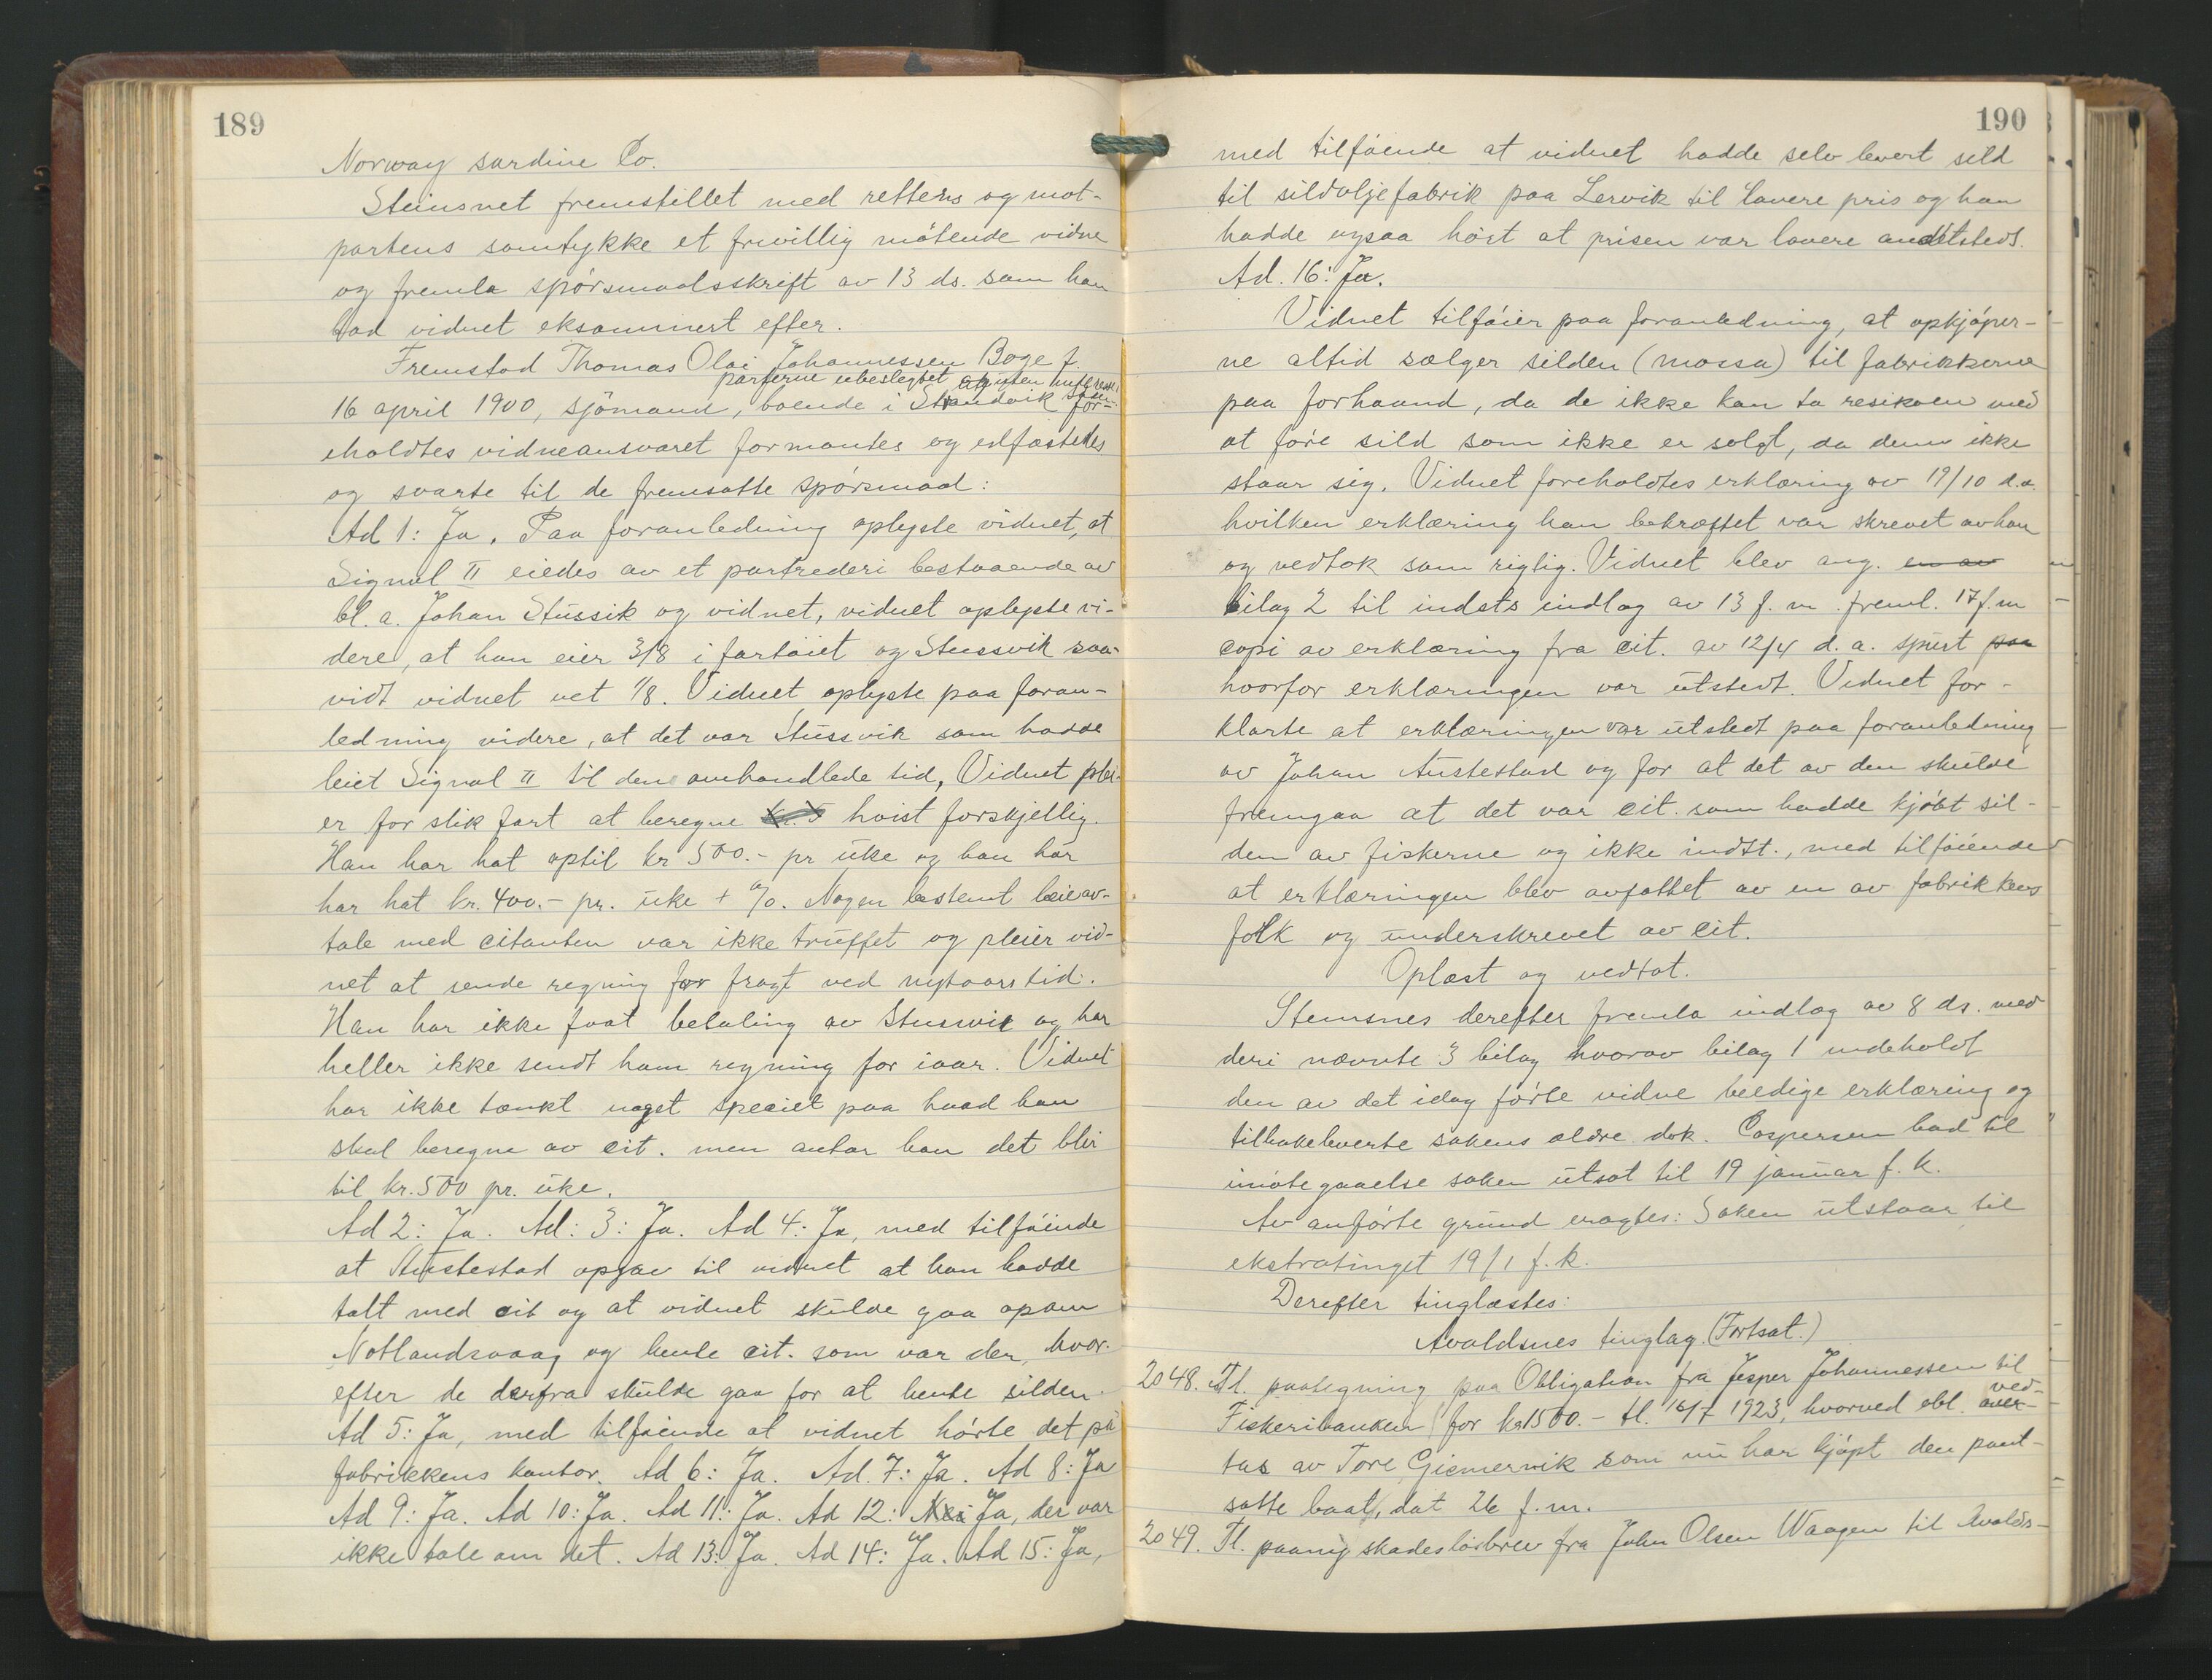 189
Norway sardine Co.
Steinsnes fremstillet med rettens og mot-
partens samtykke et frivillig mötende vidne
og fremla spörsmaalsskrift av 13 ds. som han
bad vidnet eksaminert efter.
Fremstod Thomas Olai Johannessen Boge f.
partferne ubeslegtet og uten interesse i saken
16 april 1900, sjömand, boende i Strandvik for-
eholdtes vidneansvaret formantes og edfæstedes
og svarte til de fremsatte spörsmaal:
Ad 1: Ja. Paa foranledning oplyste vidnet, at
Signal II eiedes av et partrederi bestaaende av
bl. a. Johan Stussik og vidnet, vidnet oplyste vi-
dere, at han eier 3/8 i fartöiet og Stussvik saa-
vidt vidnet vet 1/8. Vidnet oplyste paa foran-
ledning videre, at det var Stussvik som hadde
leiet Signal II til den omhandlede tid, Vidnet plei-
er for slik fart at beregne kr. 5 höist forskjellig.
Han har hat optil kr 500.- pr uke og han har
har hat kr. 400.- pr. uke + %. Nogen bestemt leieav-
tale med citanten var ikke truffet og pleier vid-
net at sende regning for fragt ved nytaarstid.
Han har ikke faat betaling av Stussvik og har
heller ikke sendt ham regning for iaar. Vidnet
har ikke tænkt noget speciet paa hvad han
skal beregne av cit. men antar han det blir
til kr. 500 pr. uke.
Ad 2: Ja. Ad: 3: Ja. Ad 4: Ja, med tilföiende
at Austestad opgav til vidnet at han hadde
talt med cit og at vidnet skulde gaa opom
Notlandsvaag og hente cit. som var der, hvor-
efter de derfra skulde gaa for at hente silden.
Ad 5: Ja, med tilföiende at vidnet hörte det på
fabrikkens kontor. Ad 6: Ja. Ad. 7: Ja. Ad 8: Ja
Ad 9: Ja. Ad 10: Ja. Ad 11: Ja. Ad 12: Nei Ja, der var
ikke tale om det. Ad 13: Ja. Ad 14: Ja. Ad 15: Ja,
190
med tilföiende at vidnet hadde selv levert sild
til sildoljefabrik paa Lervik til lavere pris og han
hadde ogsaa hört at prisen var lavere andetsteds.
Ad. 16: Ja.
Vidnet tilföier paa foranledning, at opkjöper-
ne altid sælger silden (mossa) til fabrikkerne
paa forhaand, da de ikke kan ta resikoen med
at före sild som ikke er solgt, da denn ikke
staar sig. Vidnet foreholdtes erklæring av 19/10 d.a.
hvilken erklæring han bekræftet var skrevet av han
og vedtok som rigtig. Vidnet blev ang. en av
bilag 2 til indsts indlæg av 13 f. m. freml. 17 f. m
copi av erklæring fra cit. av 12/4 d. a. spurt paa
hvorfor erklæringen var utstedt. Vidnet for-
klarte at erklæringen var utstedt paa foranledning
av Johan Austestad og for at det av den skulde
fremgaa at det var cit. som hadde kjöbt sil-
den av fiskerne og ikke indst., med tilföiende
at erklæringen blev avfattet av en av fabrikkens
folk og underskrevet av cit.
Oplæst og vedtat.
Steinsnes derefter fremla indlæg av 8 ds. med
deri nævnte 3 bilag hvorav bilag 1 indeholdt
den av det idag förte vidne beedige erklæring og
tilbakeleverte sakens ældre dok. Caspersen bad til
imötegaaelse saken utsat til 19 januar f. k.
Av anförte grund eragtes: Saken utstaar til
ekstratinget 19/1 f. k.
Derefter tinglæstes:
Avaldsnes tinglag. (Fortsat.)
2048. Tl. paategning paa Obligation fra Jesper Johannessen til
Fiskeribanken for kr 1500.- tl. 16/7 1923, hvorved obl. over- ved-
tas av Tore Giemervik som nu har kjöpt den pant-
satte baat, dat 26 f. m.
2049. Tl. paany skadeslösbrev fra John Olsen Waagen til Avalds-